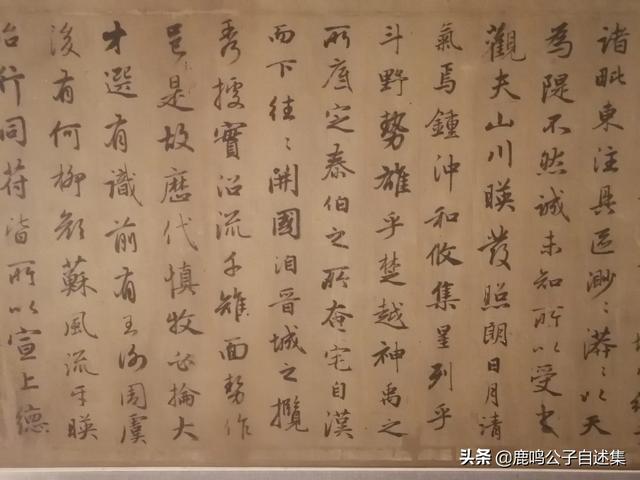 諸毗東注具區渺〻漭〻以天
為隄不然誠未知所以受之
觀夫山川暎發照朗日月清
氣焉鍾沖和攸集星列乎
斗野勢雄乎楚越神禹之
所底定泰伯之所奄宅自漢
而下往〻開國洎晉城之攬
秀據實沿流千雉面勢作
邑是故歷代慎牧必掄大
才選有識前有王謝周虞
後有何柳顏蘇風流乎暎
治行同符皆所以宣上德
头条 @鹿鸣公子自述集